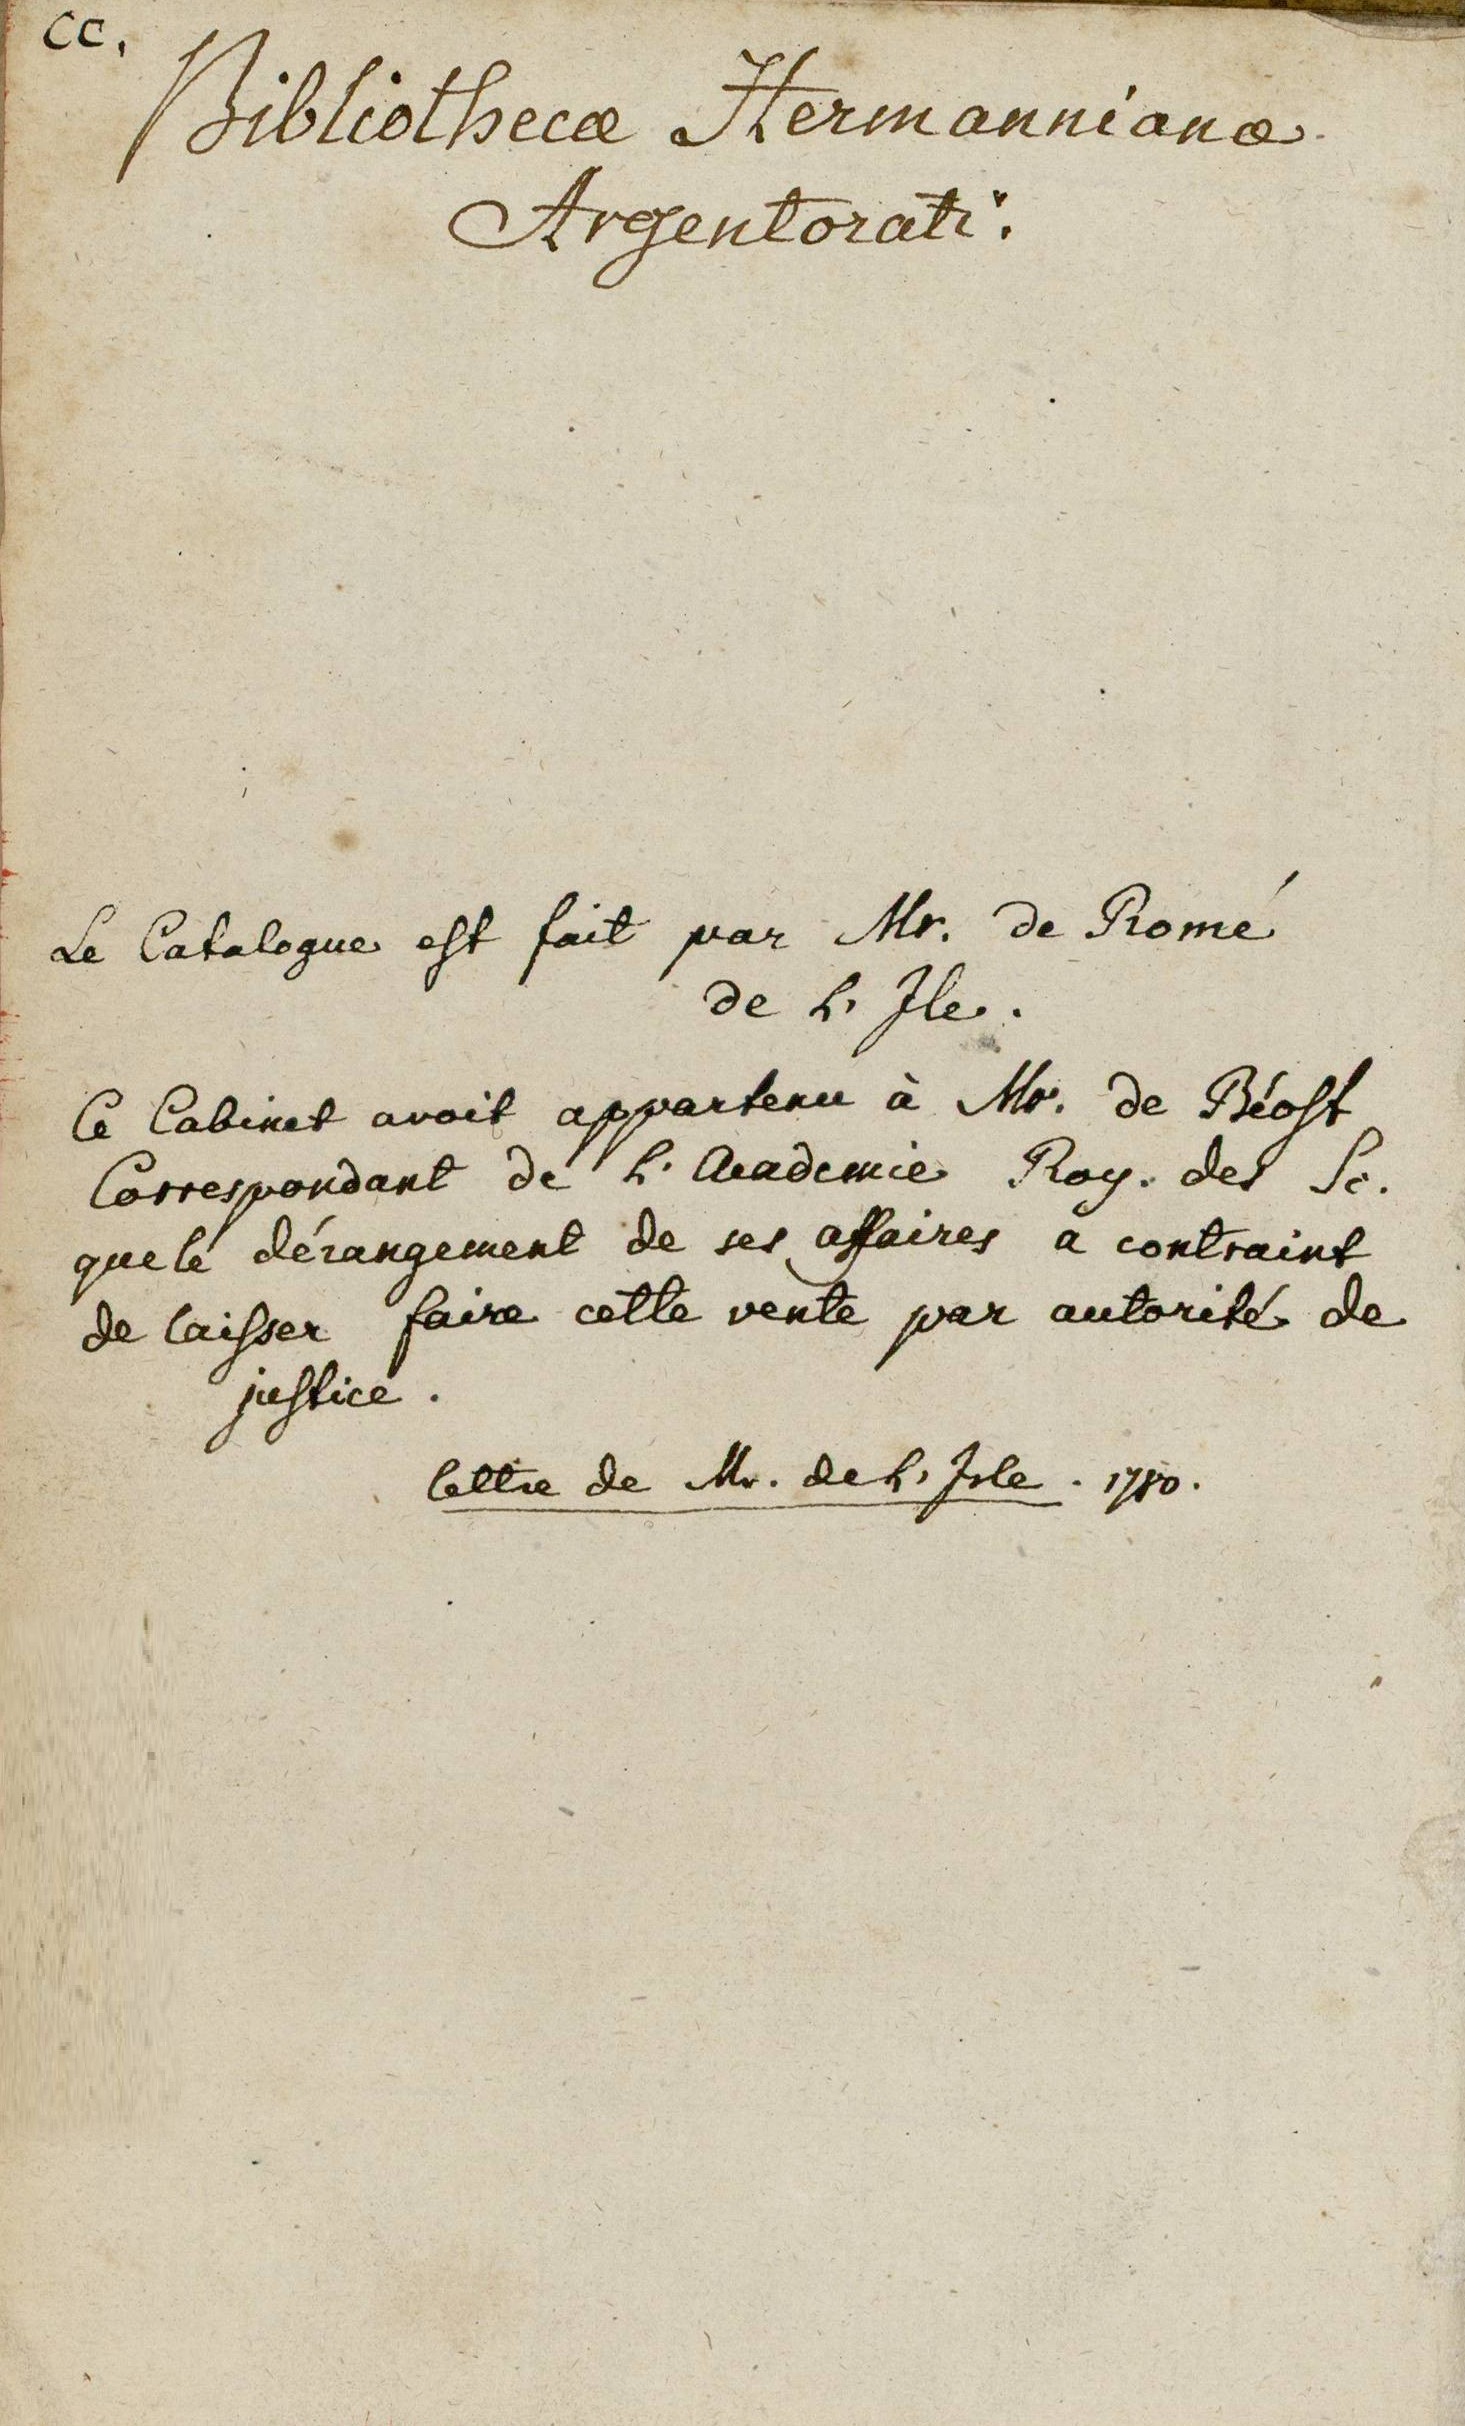 CC.
Bibliothecæ Hermannianæ
Argentorati.
Le Catalogue est fait par Mr. de Romé
de L'Ile.
Ce Cabinet avoit appartenu à Mr. de Béost
Correspondant de L'Academie Roy. des Sc.
que le dérangement de ses affaires a contraint
de laisser faire cette vente par autorité de
justice.
lettre de Mr. de L'Isle. 1780.